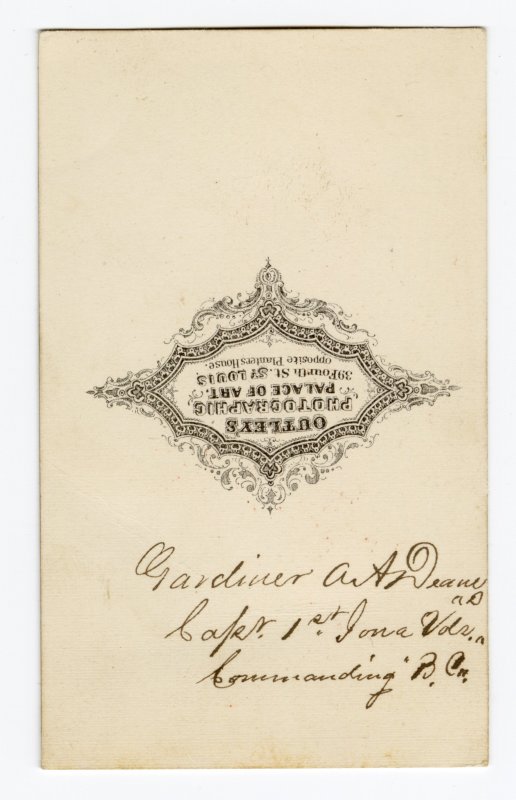 OUTLEY'S
PHOTOGRAPHIC
PALACE OF ART.
39 Fourth St. St. LOUIS
opposite Planters House.
Gardiner A. A. Deane
Capt. 1st Iowa Vols.
Commanding "B. Co.